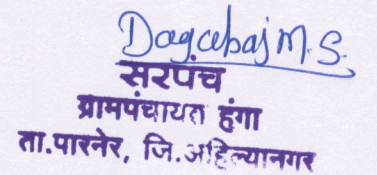 Dagabaj M.S.
सरपंच
ग्रामपंचायत हंगा
ता.पारनेर, जि.अहिल्यानगर